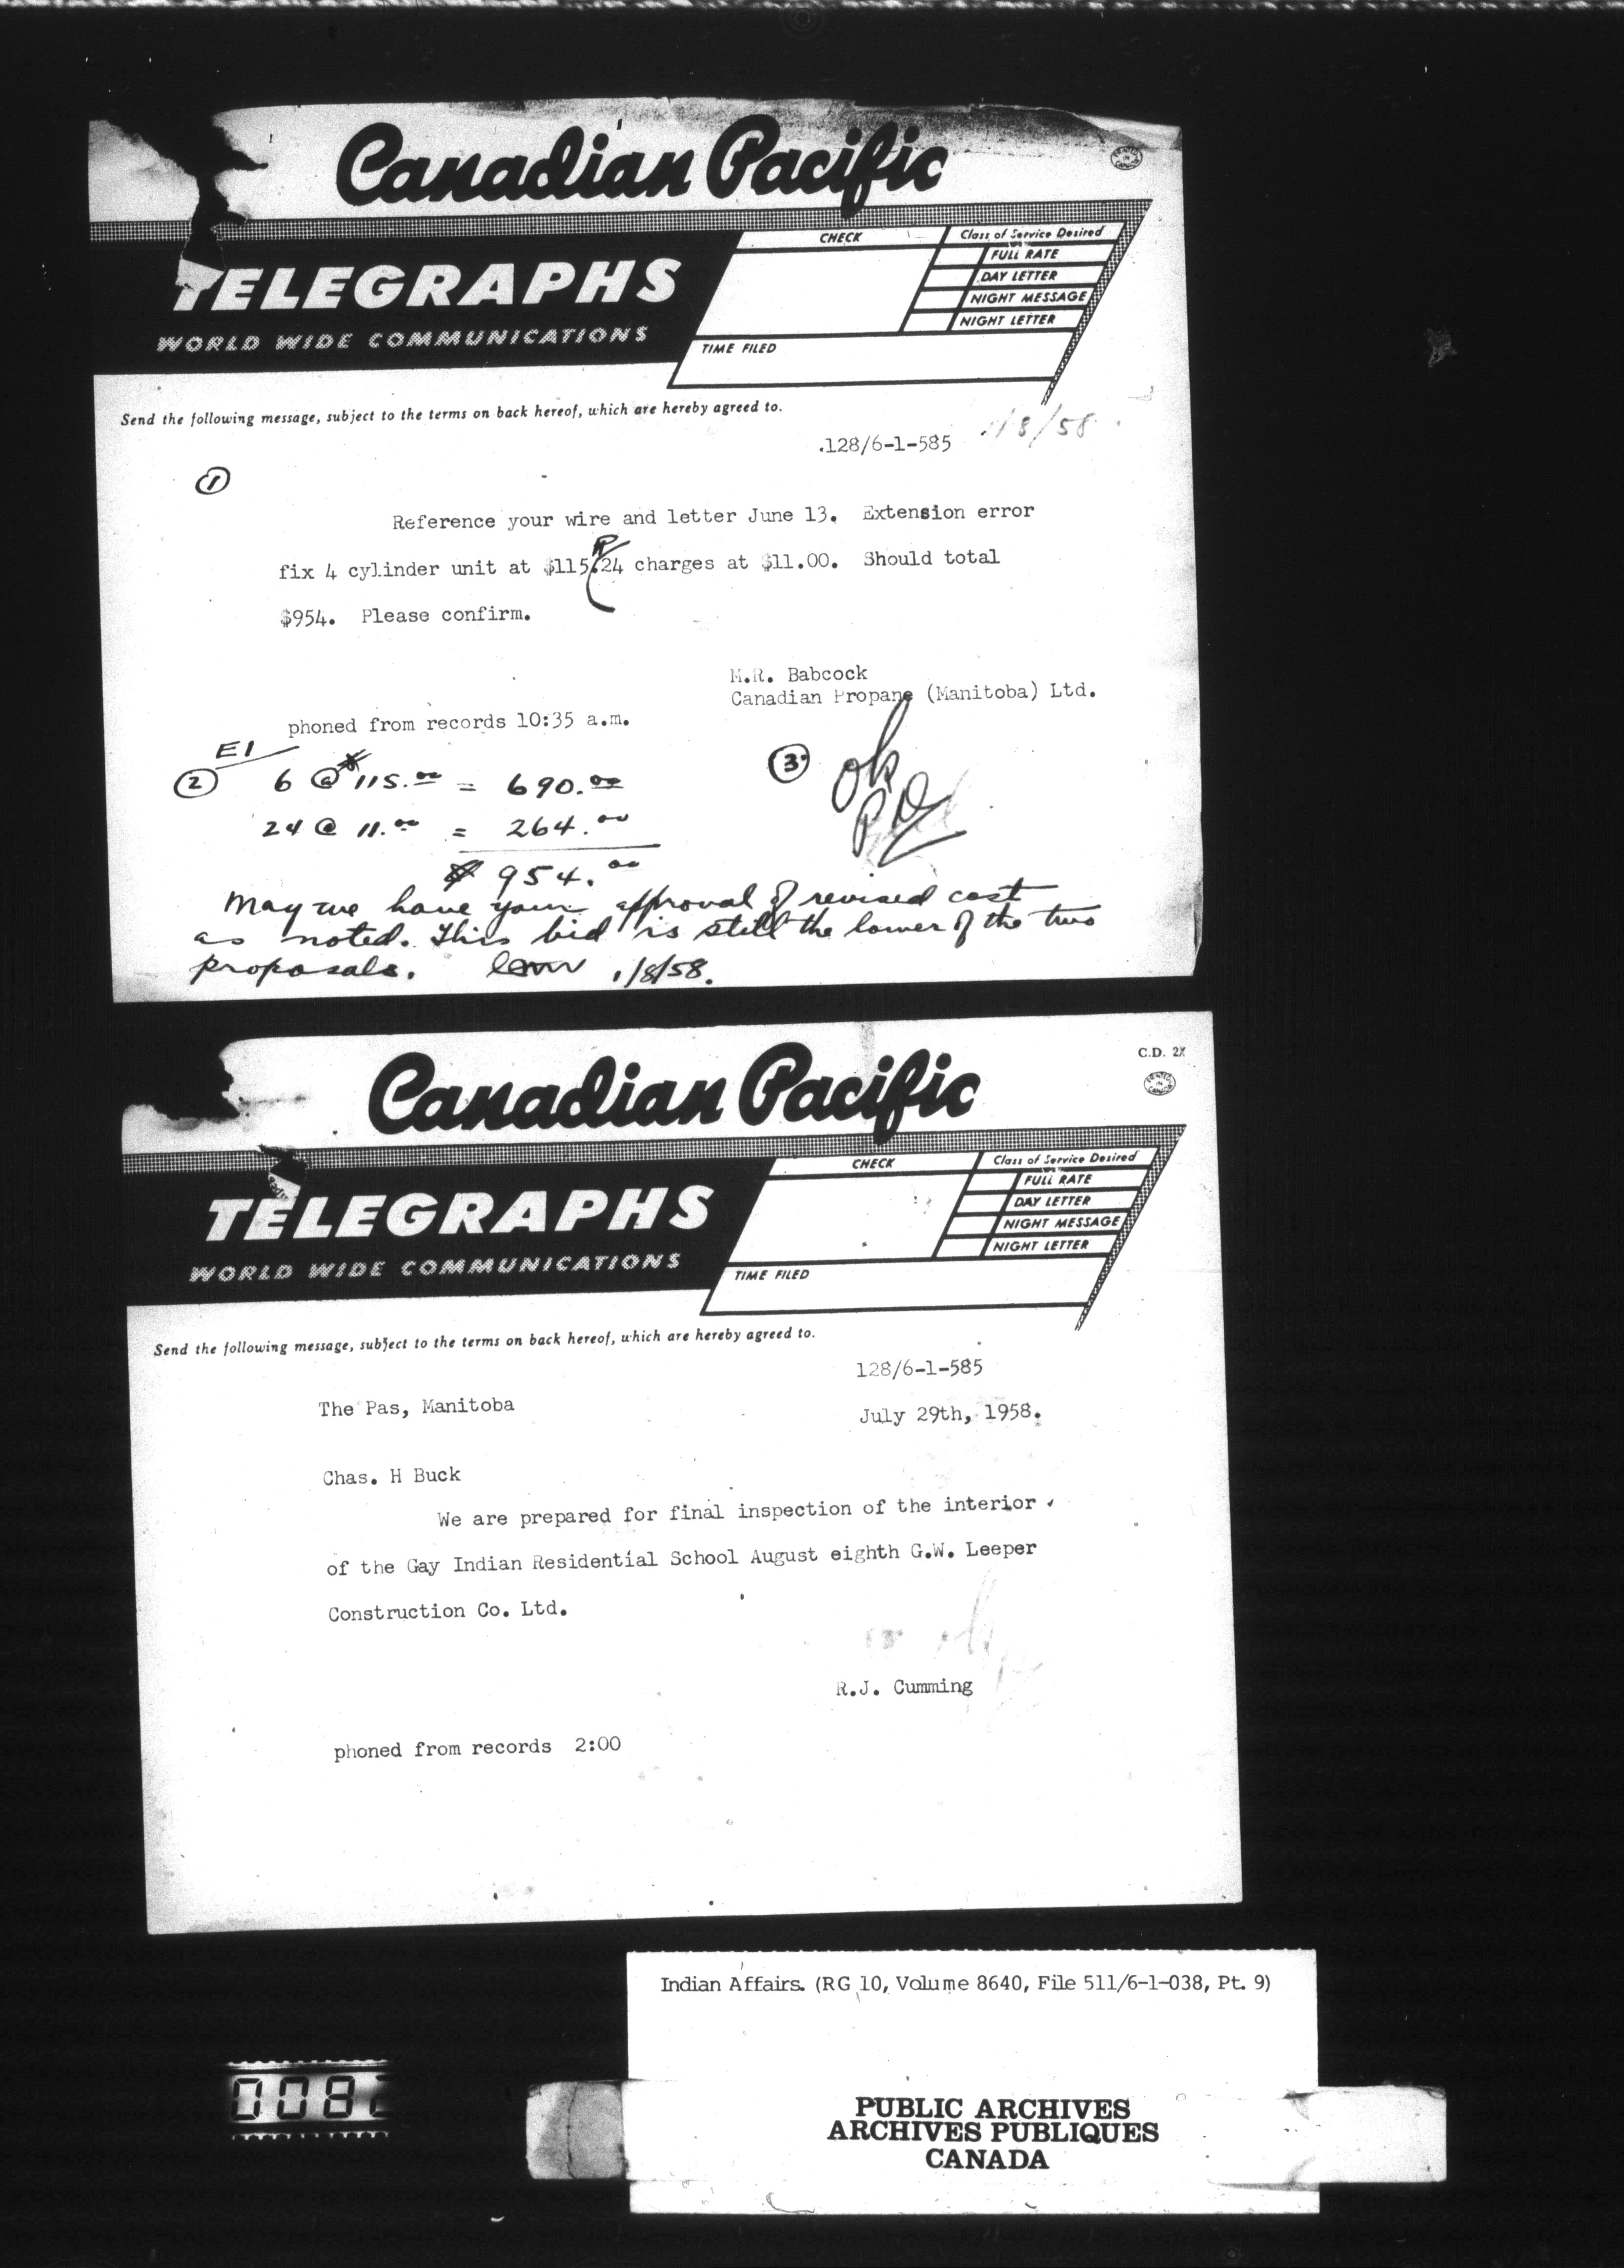 Canadian Pacific
PRINTED IN CANADA
TELEGRAPHS
WORLD WIDE COMMUNICATIONS
CHECK
Class of Service Desired
FULL RATE
DAY LETTER
NIGHT MESSAGE
NIGHT LETTER
TIME FILED
Send the following message, subject to the terms on back hereof, which are hereby agreed to.
128/6-1-585 1/8/58
1
Reference your wire and letter June 13. Extension error
fix 4 cylinder unit at $115.24 charges at $11.00. Should total
$954. Please confirm.
M.R. Babcock
Canadian Propane (Manitoba) Ltd.
phoned from records 10:35 a.m.
E1
2 6 @ $115.00 = 690.00
24 @ 11.00 = 264.00
$ 954.00
3 ok
May we have your approval of revised cost
as noted. This bid is still the lower of the two
proposals. 1/8/58.
C.D. 2X
Canadian Pacific
PRINTED IN CANADA
TELEGRAPHS
WORLD WIDE COMMUNICATIONS
CHECK
Class of Service Desired
FULL RATE
DAY LETTER
NIGHT MESSAGE
NIGHT LETTER
TIME FILED
Send the following message, subject to the terms on back hereof, which are hereby agreed to.
128/6-1-585
The Pas, Manitoba
July 29th, 1958.
Chas. H Buck
We are prepared for final inspection of the interior
of the Gay Indian Residential School August eighth G.W. Leeper
Construction Co. Ltd.
R.J. Cumming
phoned from records 2:00
Indian Affairs. (RG 10, Volume 8640, File 511/6-1-038, Pt. 9)
008
PUBLIC ARCHIVES
ARCHIVES PUBLIQUES
CANADA